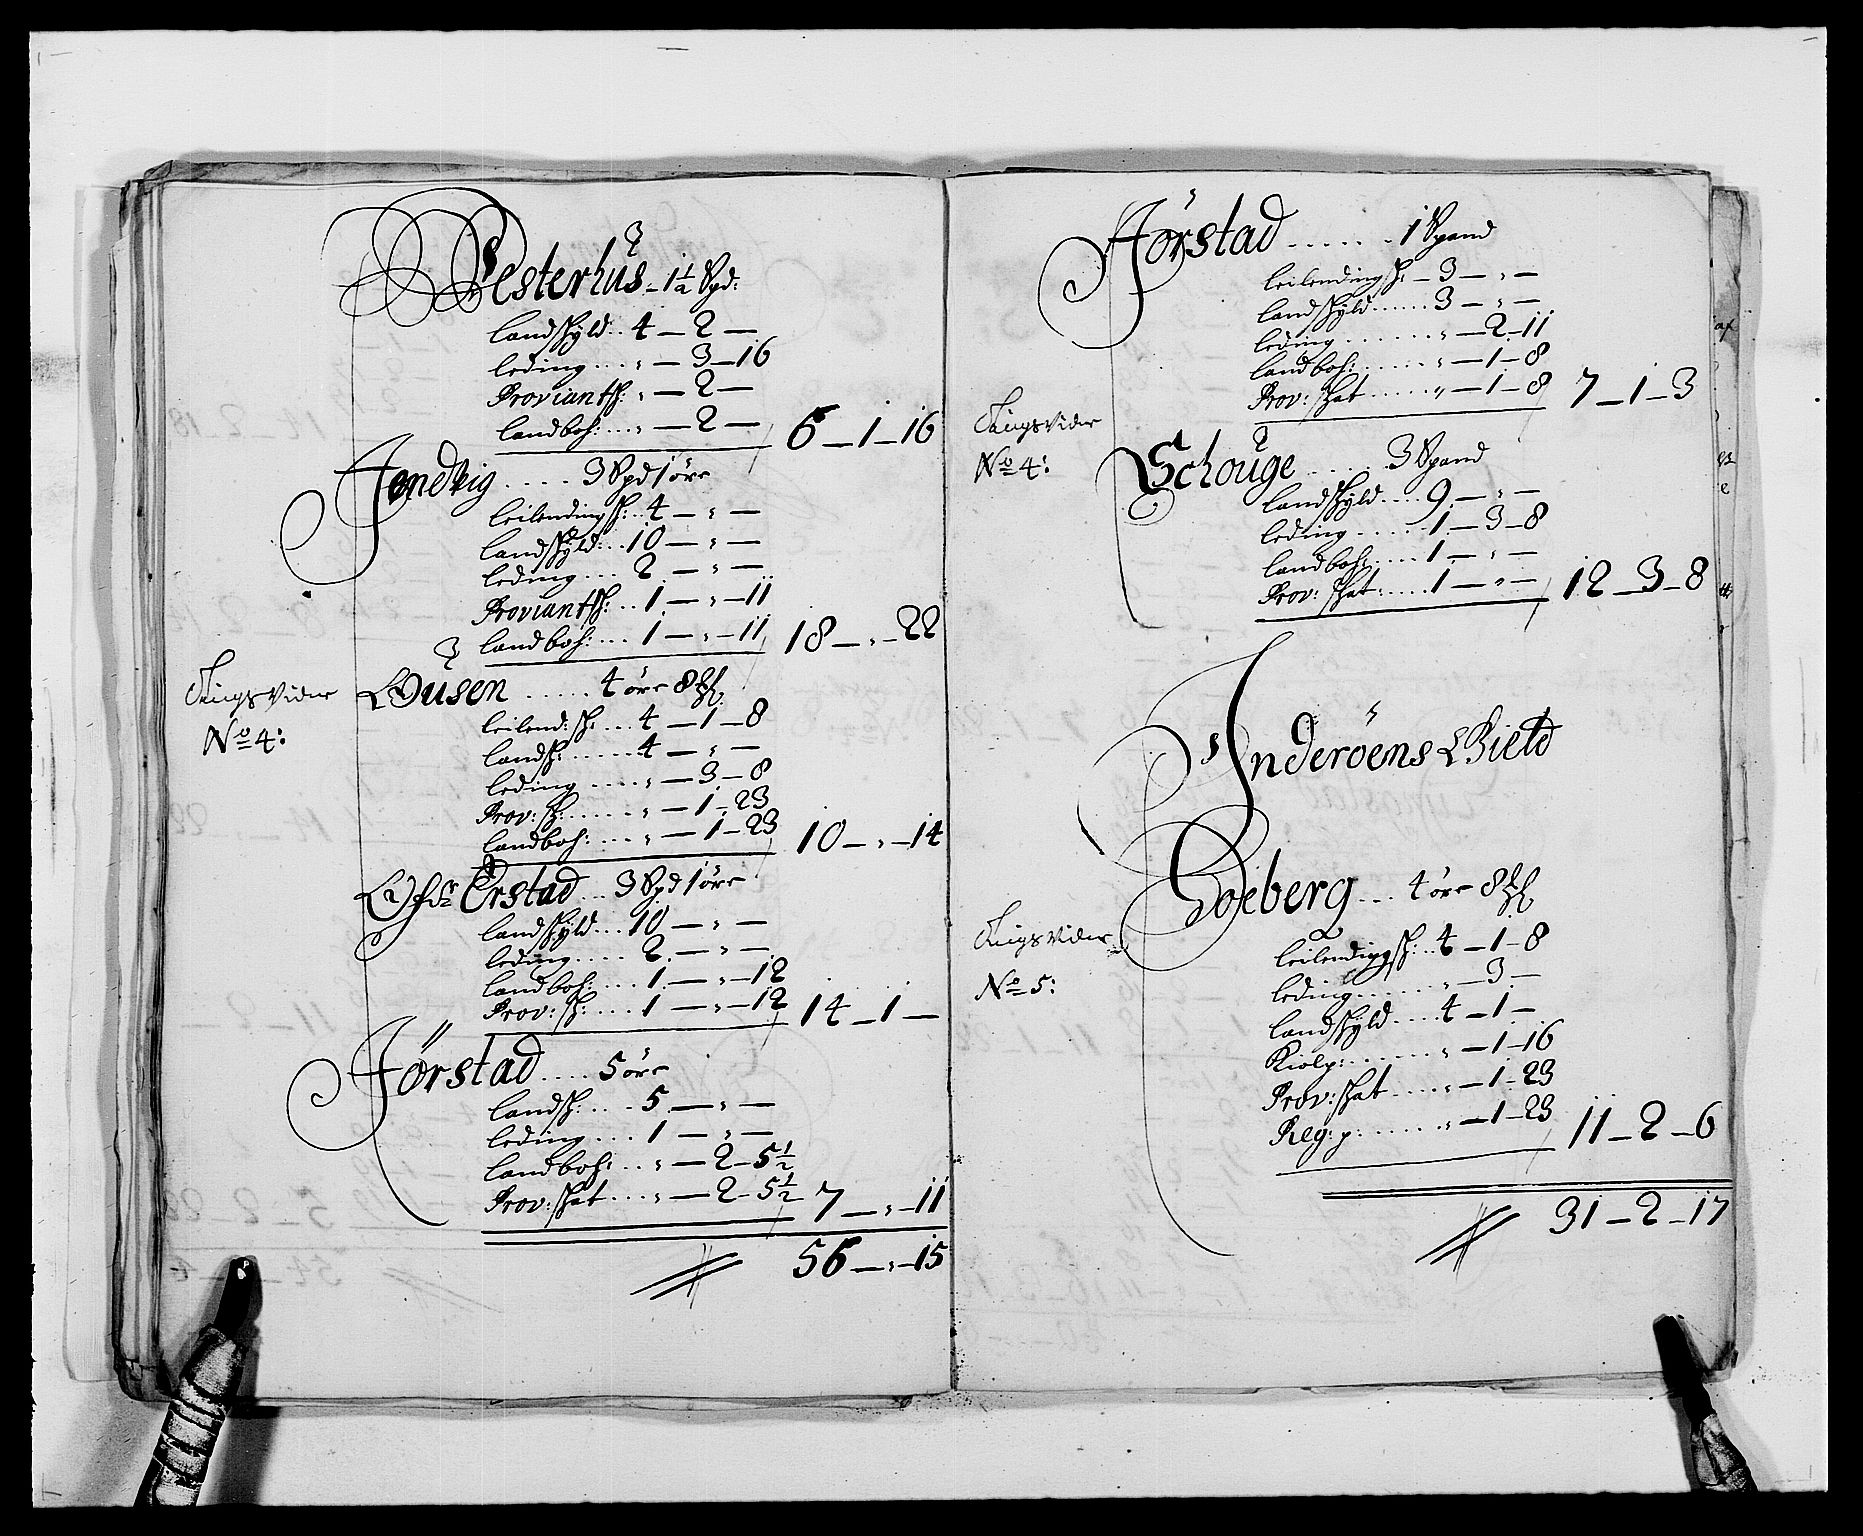 Vesterhus - 1½ Spd:
landskyld .. 4 — 2 —
leding .... „ — 3 — 16
Proviantsk: „ — 2 —
landboh: ... „ — 2 — 6 — 1 — 16
Jendvig ..... 3 Spd 1 öre
leilendingsk: .. 4 — „ —
landskyld: .. 10 — „ —
leding .... 2 — „ —
Proviantsk: .. 1 — „ — 11
landboh: .... 1 — „ — 11 18 — „ — 22
Tingsvidne
No 4:
Husen ..... 4 öre 8
leilend: sk: ... 4 — 1 — 8
landsk: ...... 4 — „ —
leding ..... „ — 3 — 8
Prov: sk: ...... „ — 1 — 23
landboh: .... „ — 1 — 23 10 — „ — 14
Örstad ... 3 Spd 1 öre
landskyld ... 10 — „ —
leding ..... 2 — „ —
landboh: .... 1 — „ — 12
Prov: sk: .... 1 — „ — 12 14 — 1 —
Jörstad .... 5 öre
landsk: .... 5 — „ —
leding .... 1 — „ —
landboh: ... „ — 2 — 5½
Prov: skat .... „ — 2 — 5½ 7 — „ — 11
56 — „ — 15
Jörstad ...... 1 Spand
leilendingsk: — 3 — „ —
landskyld ...... 3 — „ —
leding ....... „ — 2 — 11
landboh: ...... „ — 1 — 8
Prov: skat ..... „ — 1 — 8 7 — 1 — 3
Tingsvidne
No 4:
Schouge ..... 3 Spand
landskyld .... 9 — „ —
leding ...... 1 — 3 — 8
landboh: .... 1 — „ —
Prov: skat: .... 1 — „ — 12 — 3 — 8
Inderöens Gield
Tingsvidne
No 5:
Söeberg ... 4 öre 8
leilendingsk: .. 4 — 1 — 8
leding ...... „ — 3 —
landskyld .... 4 — 1 —
Kiolp: ...... „ — 1 — 16
Prov: skat .... „ — 1 — 23
Reg: p: ...... „ — 1 — 23 11 — 2 — 6
31 — 2 — 17